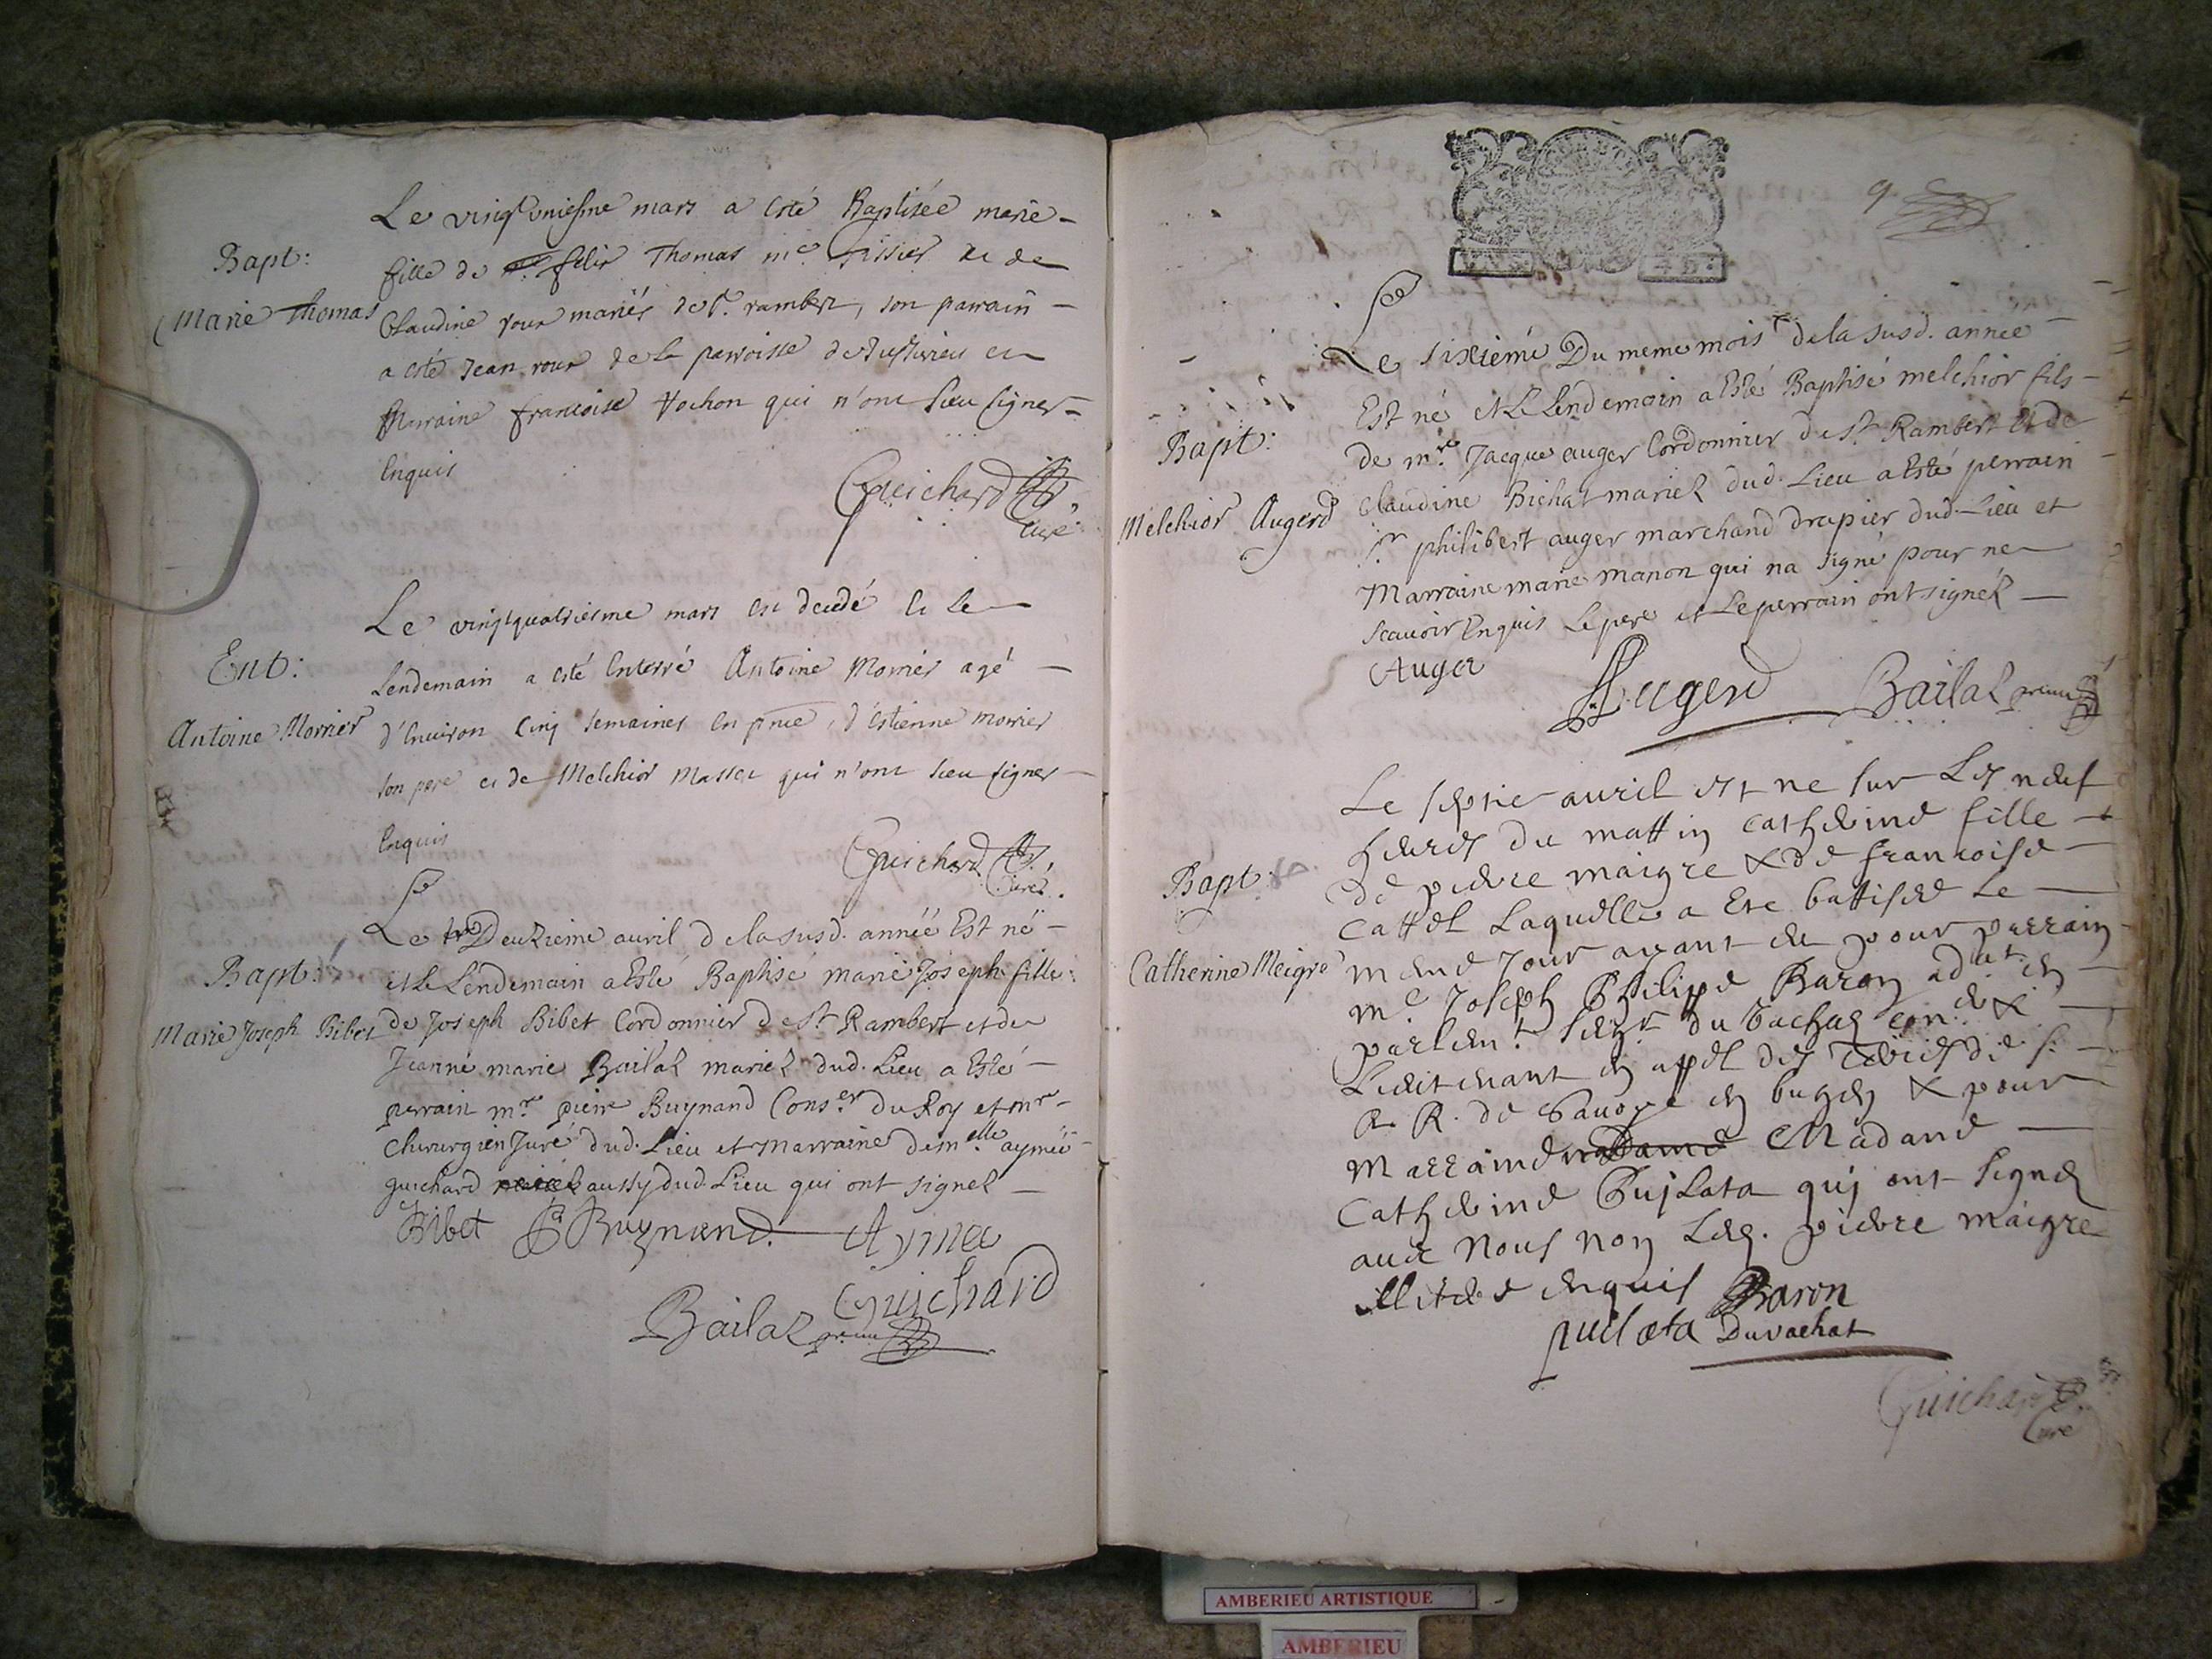 Bapt:
Marie Thomas
Le vingt uniesme mars a esté Baptisée marie
fille de felix Thomas me Tissier et de
Claudine roux mariés de St. rambert, son parrain
a esté Jean roux de la parroisse de Jusurieu et
Marraine francoise Vochon qui n'ont sceu signer
Enquis
Guichard
Curé
Ent:
Antoine Morrier
Le vingtquatriesme mars est decedé et le
Lendemain a esté Enterré Antoine Morrier agé
d'Enuiron Cinq semaines En pnce d'Estienne morrier
son pere et de Melchior Masset qui n'ont sceu signer
Enquis
Guichard
Curé
Bapt:
Marie Joseph Bibet
Le Deuxieme auril de la susd. année Est né
et le Lendemain a Esté Baptisé marie Joseph fille
de Joseph Bibet Cordonnier de St Rambert et de
Jeanne marie Bailat mariez dud. Lieu a Esté
perrain mr. pierre Buynand Conser. du Roy et mr
chirurgien Juré dud. Lieu et Marraine demelle. aymée
guichard aussy dud. Lieu qui ont signez
Bibet Buynand Aymee
Guichard
Bailaz
9
Bapt:
Melchior Augerd
Le sixiéme Du meme mois de la susd. année
Est né et le Lendemain a Esté Baptisé melchior fils
de mre. Jacque auger Cordonnier de St. Rambert et de
Claudine Bichat mariez dud. Lieu a Esté perrain
sr philibert auger marchand drapier dud. Lieu et
Marraine marie manon qui na signé pour ne
scauoir Enquis Le pere et Le perrain ont signéz
Auger
Augerd Bailaz
Bapt:
Catherine Meigre
Le septie auril est ne sur Les neuf
heures du mattin catherine fille
de pierre maigre & de francoise
Cattet Laquelle a Ete battisee Le
meme Jour ayant eu pour perrain
me. Joseph Philipe Baron adat. en
parlent. seigr. du Vachat con.er &
Lieutenant en apel des Terres de s.
A. R. de Sauoye en bugey & pour
Marraine Madame
Catherine Puylata quj ont signé
auec Nous non Led. pierre maigre
illitere enquis Baron
puilata Duvachat
Guichard
Curé
AMBERIEU ARTISTIQUE
AMBERIEU